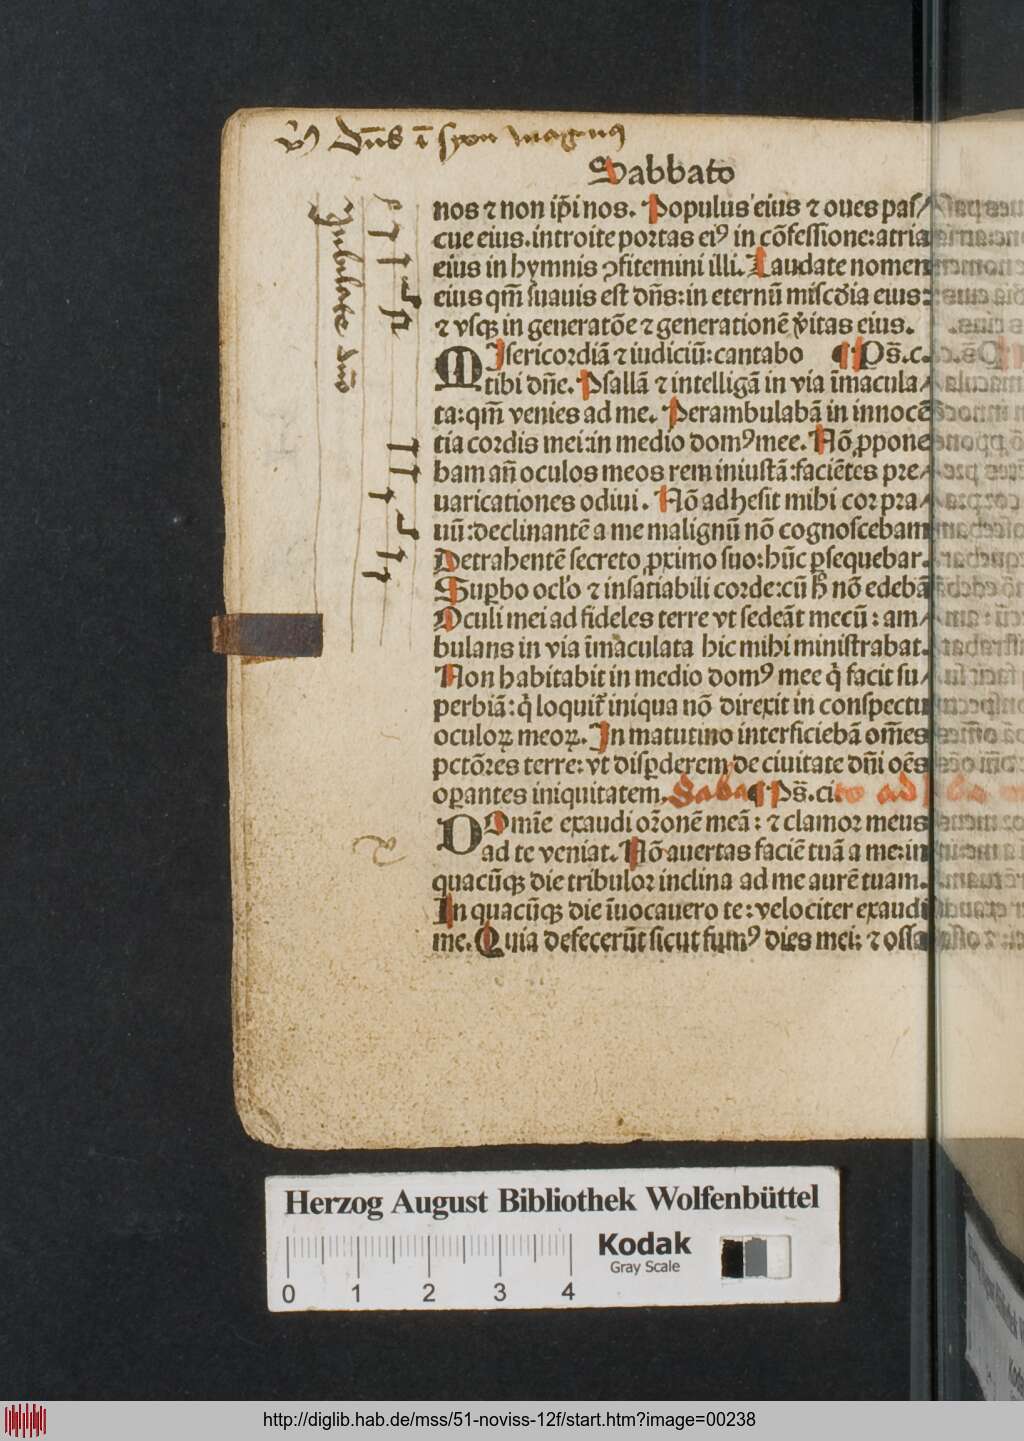 Dn̄s ī syon magnꝰ
Sabbato
Jubilate dn̄o
nos ⁊ non ip̄i nos. Populus eius ⁊ oues paſ/
cue eius. introite portas eiꝰ in cōfeſſione: atria
eius in hymnis ꝯfitemini illi. Laudate nomen
eius qm̄ ſuauis eſt dn̄s: in eternū miſcd̄ia eius:
⁊ vſqꝫ in generatōe ⁊ generationē v̄itas eius.
MIſericordiā ⁊ iudiciū: cantabo ¶ Ps̄. c.
tibi dn̄e. Pſallā ⁊ intelligā in via īmacula/
ta: qm̄ venies ad me. Perambulabā in innocē
tia cordis mei: in medio domꝰ mee. Nō ꝓpone
bam an̄ oculos meos rem iniuſtā: faciētes pre/
uaricationes odiui. Nō adheſit mihi cor pra/
uū: declinantē a me malignū nō cognoſcebam
Detrahentē ſecreto ꝓximo ſuo: hūc ꝑſequebar.
Suꝑbo oclo ⁊ inſatiabili corde: cū h̄ nō edebā
Oculi mei ad fideles terre vt ſedeāt mecū: am/
bulans in via īmaculata hic mihi miniſtrabat.
Non habitabit in medio domꝰ mee q̇ facit ſu/
perbiā: q̇ loquit᷑ iniqua nō direxit in conſpectu
oculoꝝ meoꝝ. In matutino interficiebā om̄es
pctōres terre: vt diſꝑderem de ciuitate dn̄i oēs
oꝑantes iniquitatem. Saba ¶ Ps̄. ci
DOmīe exaudi or̄onē meā: ⁊ clamor meus
ad te veniat. Nō auertas faciē tuā a me: in
quacūqꝫ die tribulor inclina ad me aurē tuam.
In quacūqꝫ die īuocauero te: velociter exaudi
me. Quia defecerūt ſicut fumꝰ dies mei: ⁊ oſſa
Herzog August Bibliothek Wolfenbüttel
Kodak
Gray Scale
0 1 2 3 4
http://diglib.hab.de/mss/51-noviss-12f/start.htm?image=00238